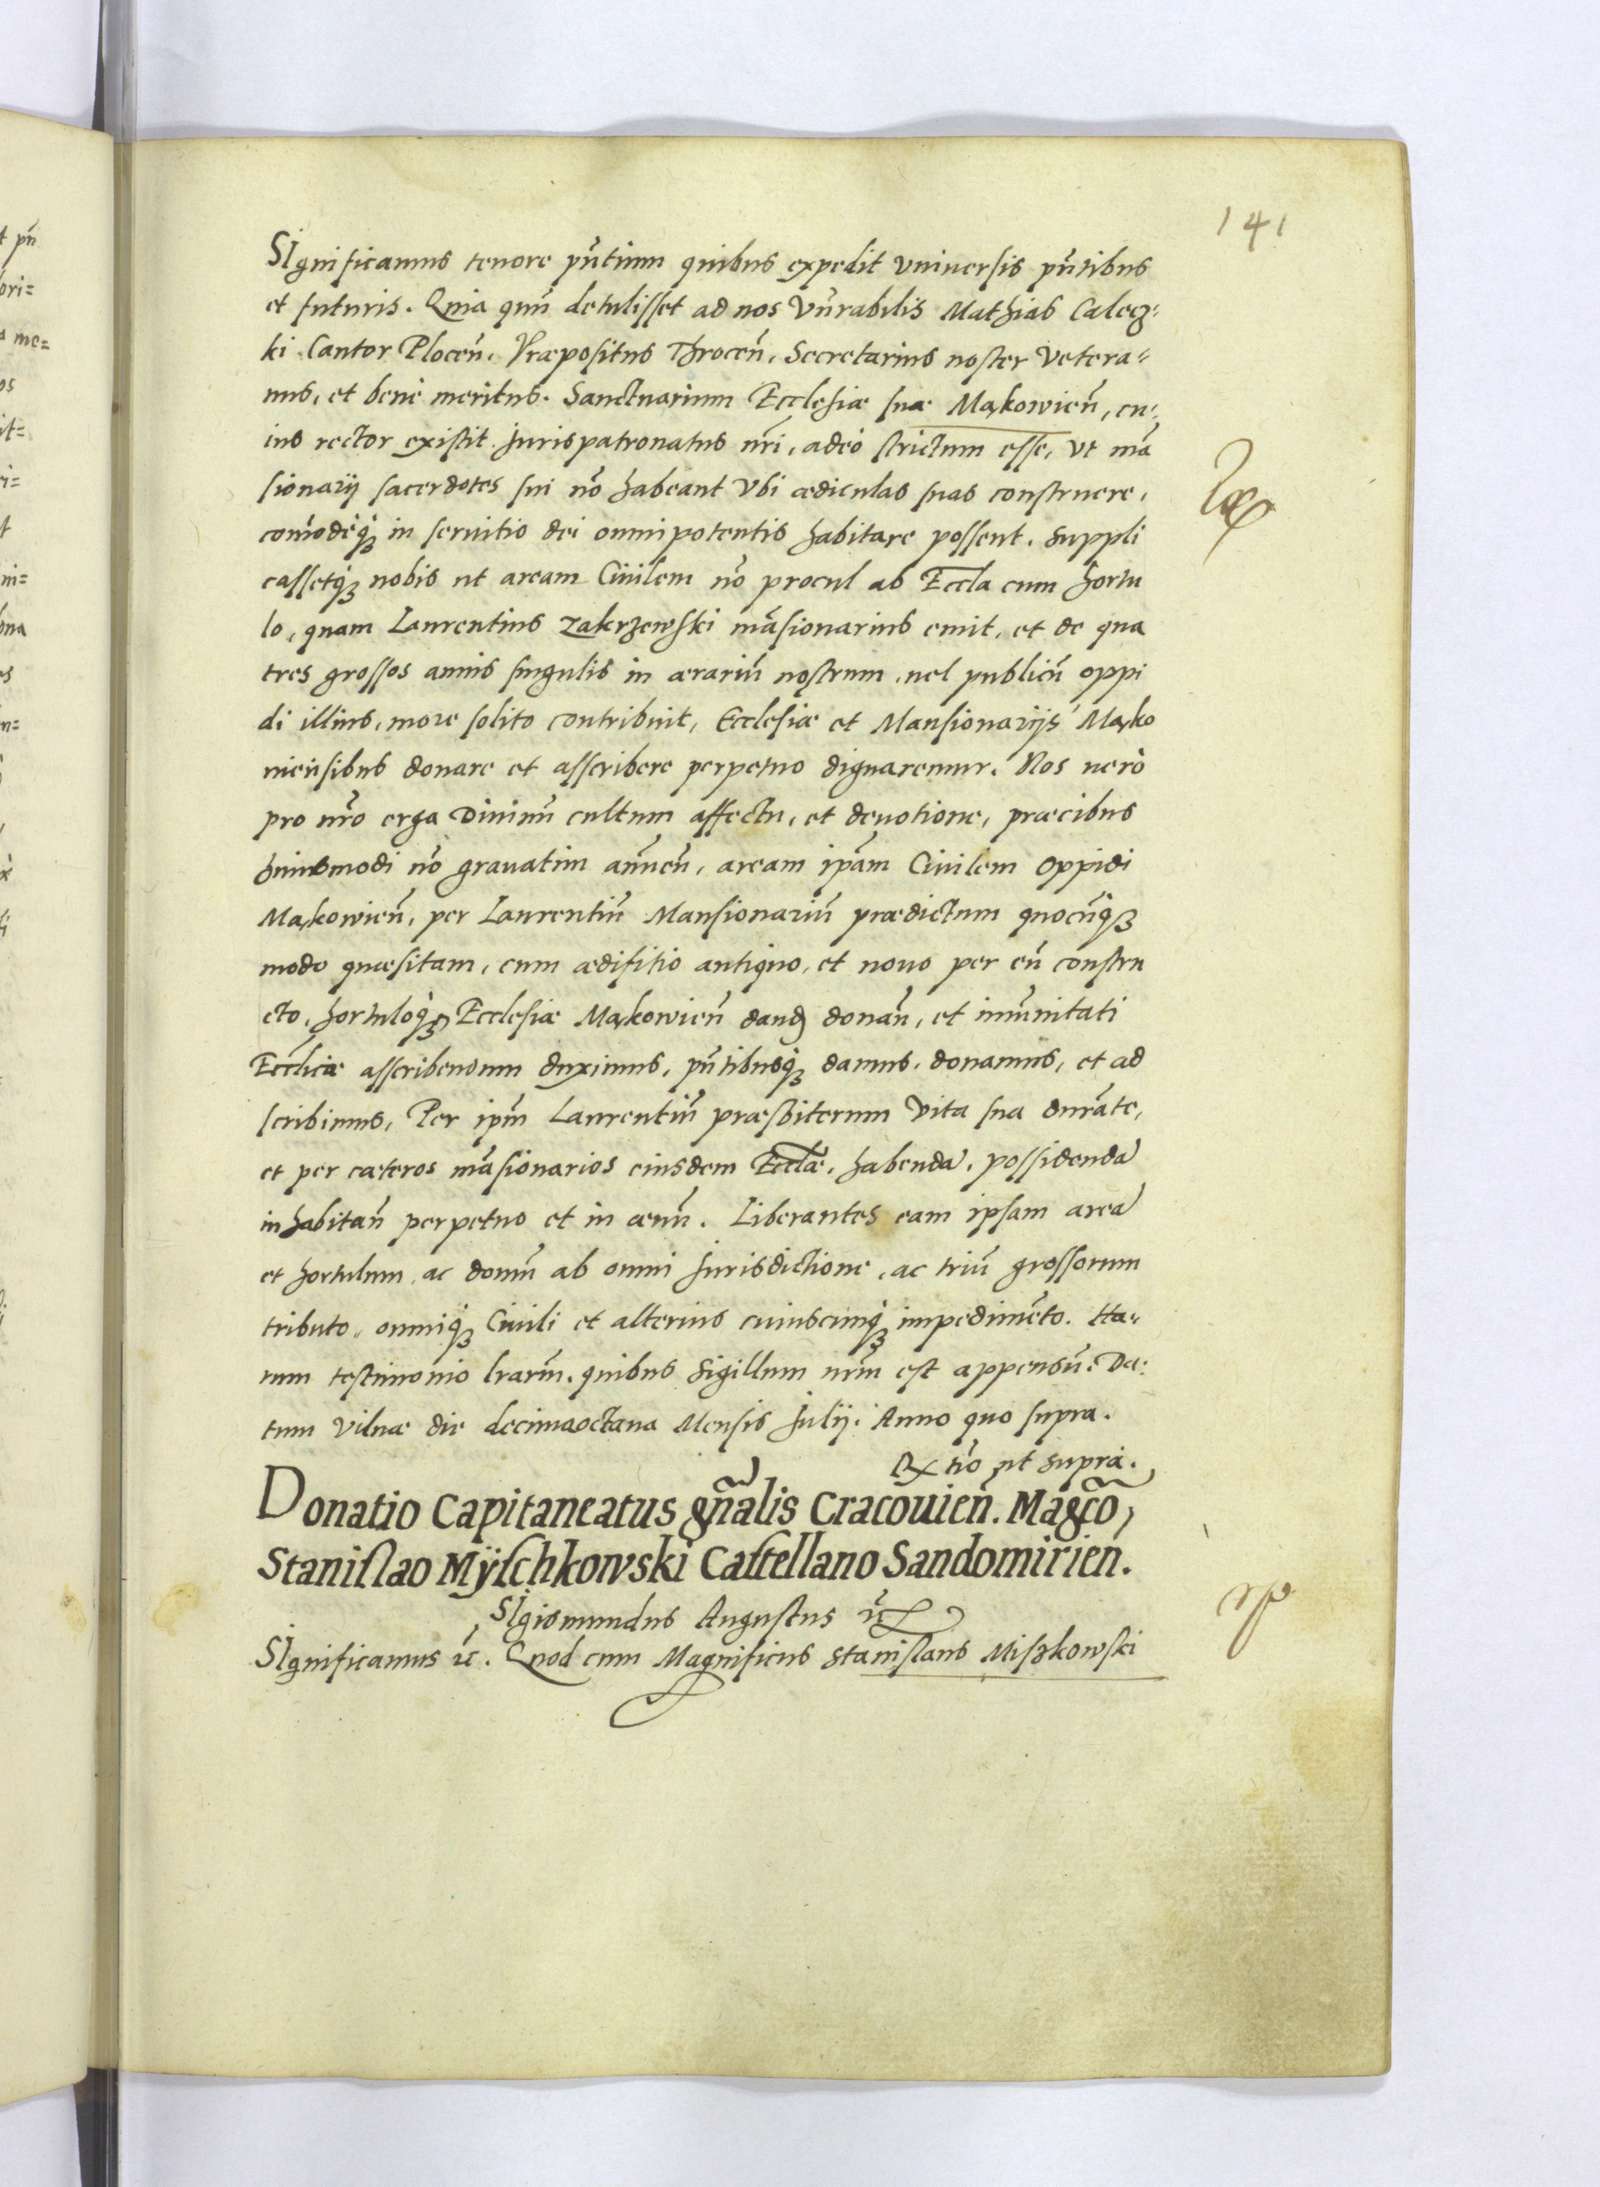 141
SIgnificamus tenore pñtium quibus expedit vniuersis pñtibus
et futuris. Quia quũ detulisset ad nos Vñrabilis Mathias Calecz-
ki Cantor Ploceñ. Præpositus Throceñ. Secretarius noster vetera-
nus, et bene meritus. Sanctuarium Ecclesiæ suæ Mąkowieñ, cu-
ius rector existit Jurispatronatus nr̃i, adeò strictum esse, vt mã
sionarij sacerdotes sui nõ habeant vbi ædiculas suas construere,
com̃odèq₃ in seruitio dei omnipotentis habitare possent. suppli
cassetq₃ nobis ut aream Ciuilem nõ procul ab Eccl̃a cum hortu
lo, quam Laurentius Zakrzewski mãsionarius emit, et de qua
tres grossos annis singulis in ærariũ nostrum, uel publicũ oppi
di illius, more solito contribuit, Ecclesiæ et Mansionarijs Mąko
uiensibus donare et asscribere perpetuo dignaremur. Nos uerò
pro nr̃o erga Diuinũ cultum affectu, et deuotione, præcibus
huiusmodi nõ grauatim añueñ, aream ip̃am Ciuilem oppidi
Mąkowieñ, per Laurentiũ Mansionariũ prædictum quocũq₃
modo quæsitam, cum ædifitio antiquo, et nouo per eũ constru
cto, hortuloq₃ Ecclesiæ Mąkowieñ dand donañ, et im̃unitati
Eccl̃icæ asscribendum duximus, pñtibusq₃ damus, donamus, et ad
scribimus, Per ip̃m Laurentiũ præsbiterum Vita sua durãte,
et per cæteros mãsionarios eiusdem Eccl̃æ, habendã, possidendã
inhabitañ perpetuo et in æuũ. Liberantes eam ipsam areã
et hortulum ac domũ ab omni Jurisdictione, ac triũ grossorum
tributo, omniq₃ Ciuili et alterius cuiuscunq₃ impedimẽto. Ha-
rum testimonio lr̃arũ, quibus Sigillum nr̃m est appensũ. Da-
tum Vilnæ die decimaoctaua Mensis Julij. Anno quo supra.
R̃x tio ut supra.
Donatio Capitaneatus gñalis Cracouieñ. Magc̃o,
Stanislao Myſchkowski Castellano Sandomirien.
SIgismundus Augustus &c̃
SIgnificamus &c̃. Quod cum Magnificus Stanislaus Miszkowski